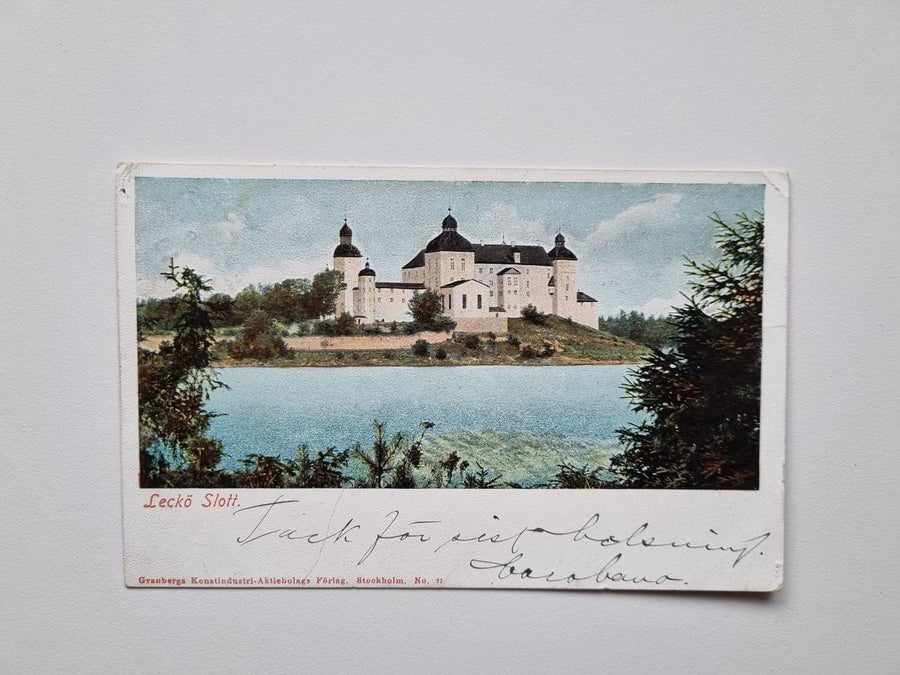 Leckö Slott.
Tack för sist hälsning.
Granbergs Konstindustri-Aktiebolags Förlag, Stockholm. No. 21